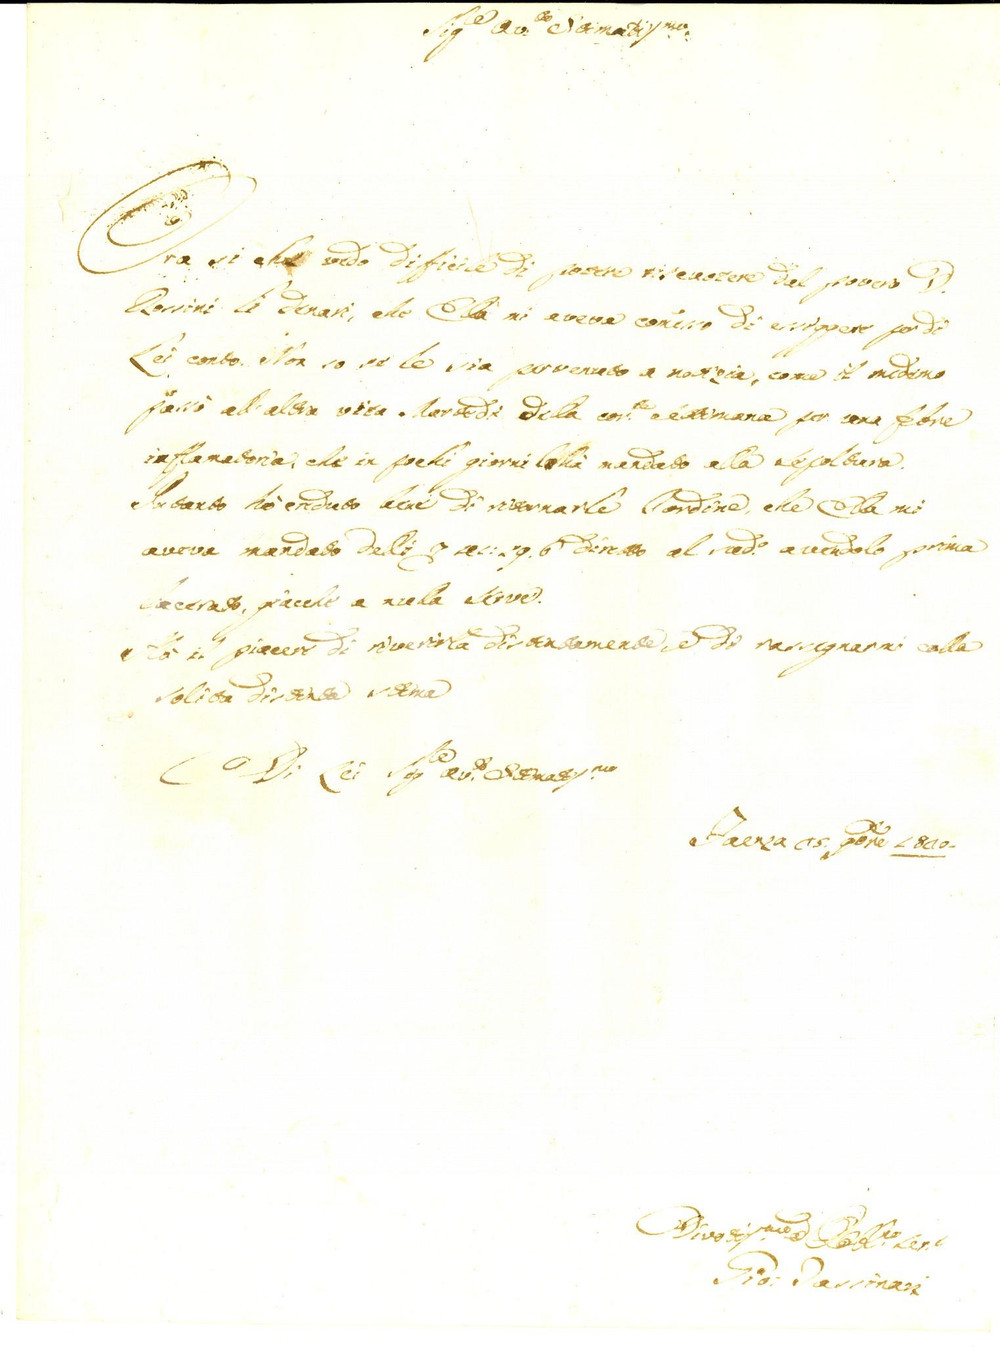 Sig.re Av.to Stimatis.mo
Ora si che vedo difficile di potere riscuotere dal povero D.
Rossini li denari, che Ella mi aveva comesso di esiggere per di
Lei conto. Non so se le sia pervenuto a notizia, come il medemo
passò all'altra vita Martedì della cor.te settimana per una febre
inflamatoria, che in pochi giorni l'ha mandato alla sepoltura.
Intanto hò creduto bene di ritornarle l'ordine, che Ella mi
aveva mandato delli diretto al sud.o avendolo prima
lacerato, giacchè a nulla serve.
Hò il piacere di riverirla distintamente, e di rassegnarmi colla
solita distinta stima
Di Lei Sig.re Av.to Stimatis.mo
Faenza 15. 1810.
Divotis.mo ed Obb.mo Ser.e
Gio: Tassinari